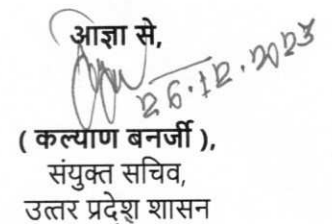 आज्ञा से,
26.12.2023
( कल्याण बनर्जी ),
संयुक्त सचिव,
उत्तर प्रदेश शासन